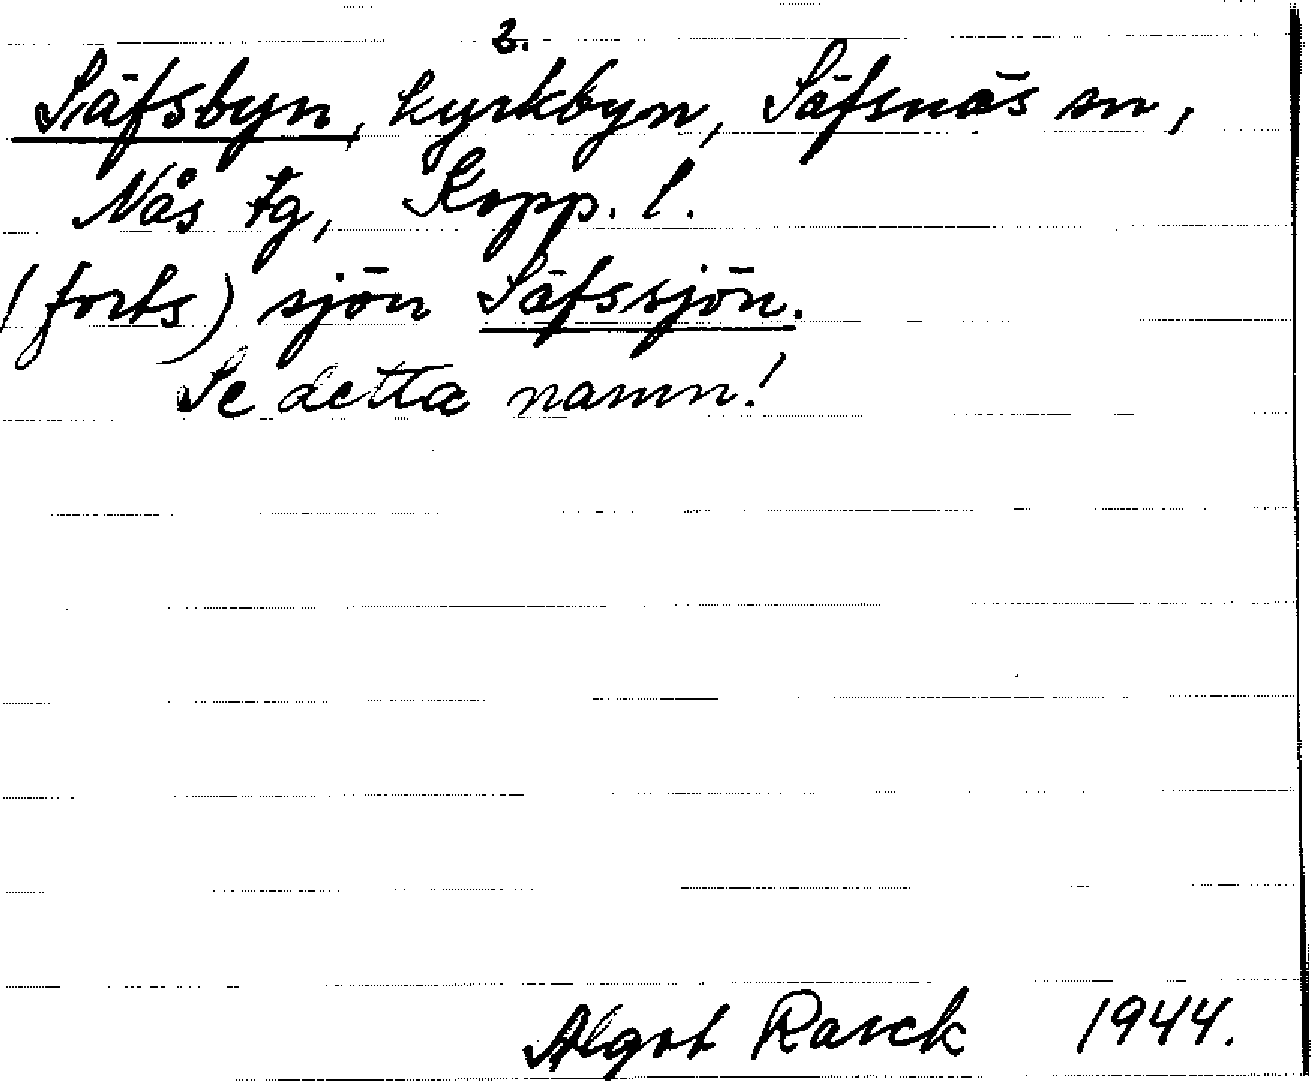 2.
Säfsbyn, kyrkbyn, Säfsnäs sn,
Nås tg, Kopp. l.
(forts) sjön Säfssjön.
Se detta namn!
Algot Rasck 1944.